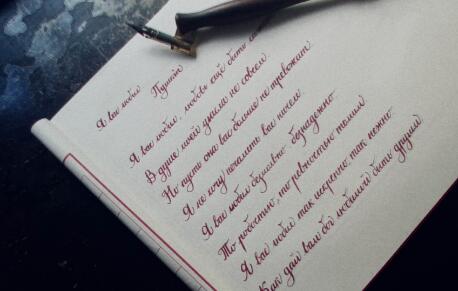 Я вас любил Пушкин
Я вас любил, любовь ещё быть
В душе моей угасла не совсем
Но пусть она вас больше не тревожит
Я не хочу печалить вас ничем.
Я вас любил безмолвно безнадежно
То робостью, то ревностью томим
Я вас любил так искренно, так нежно
Как дай вам бог любимой быть другим